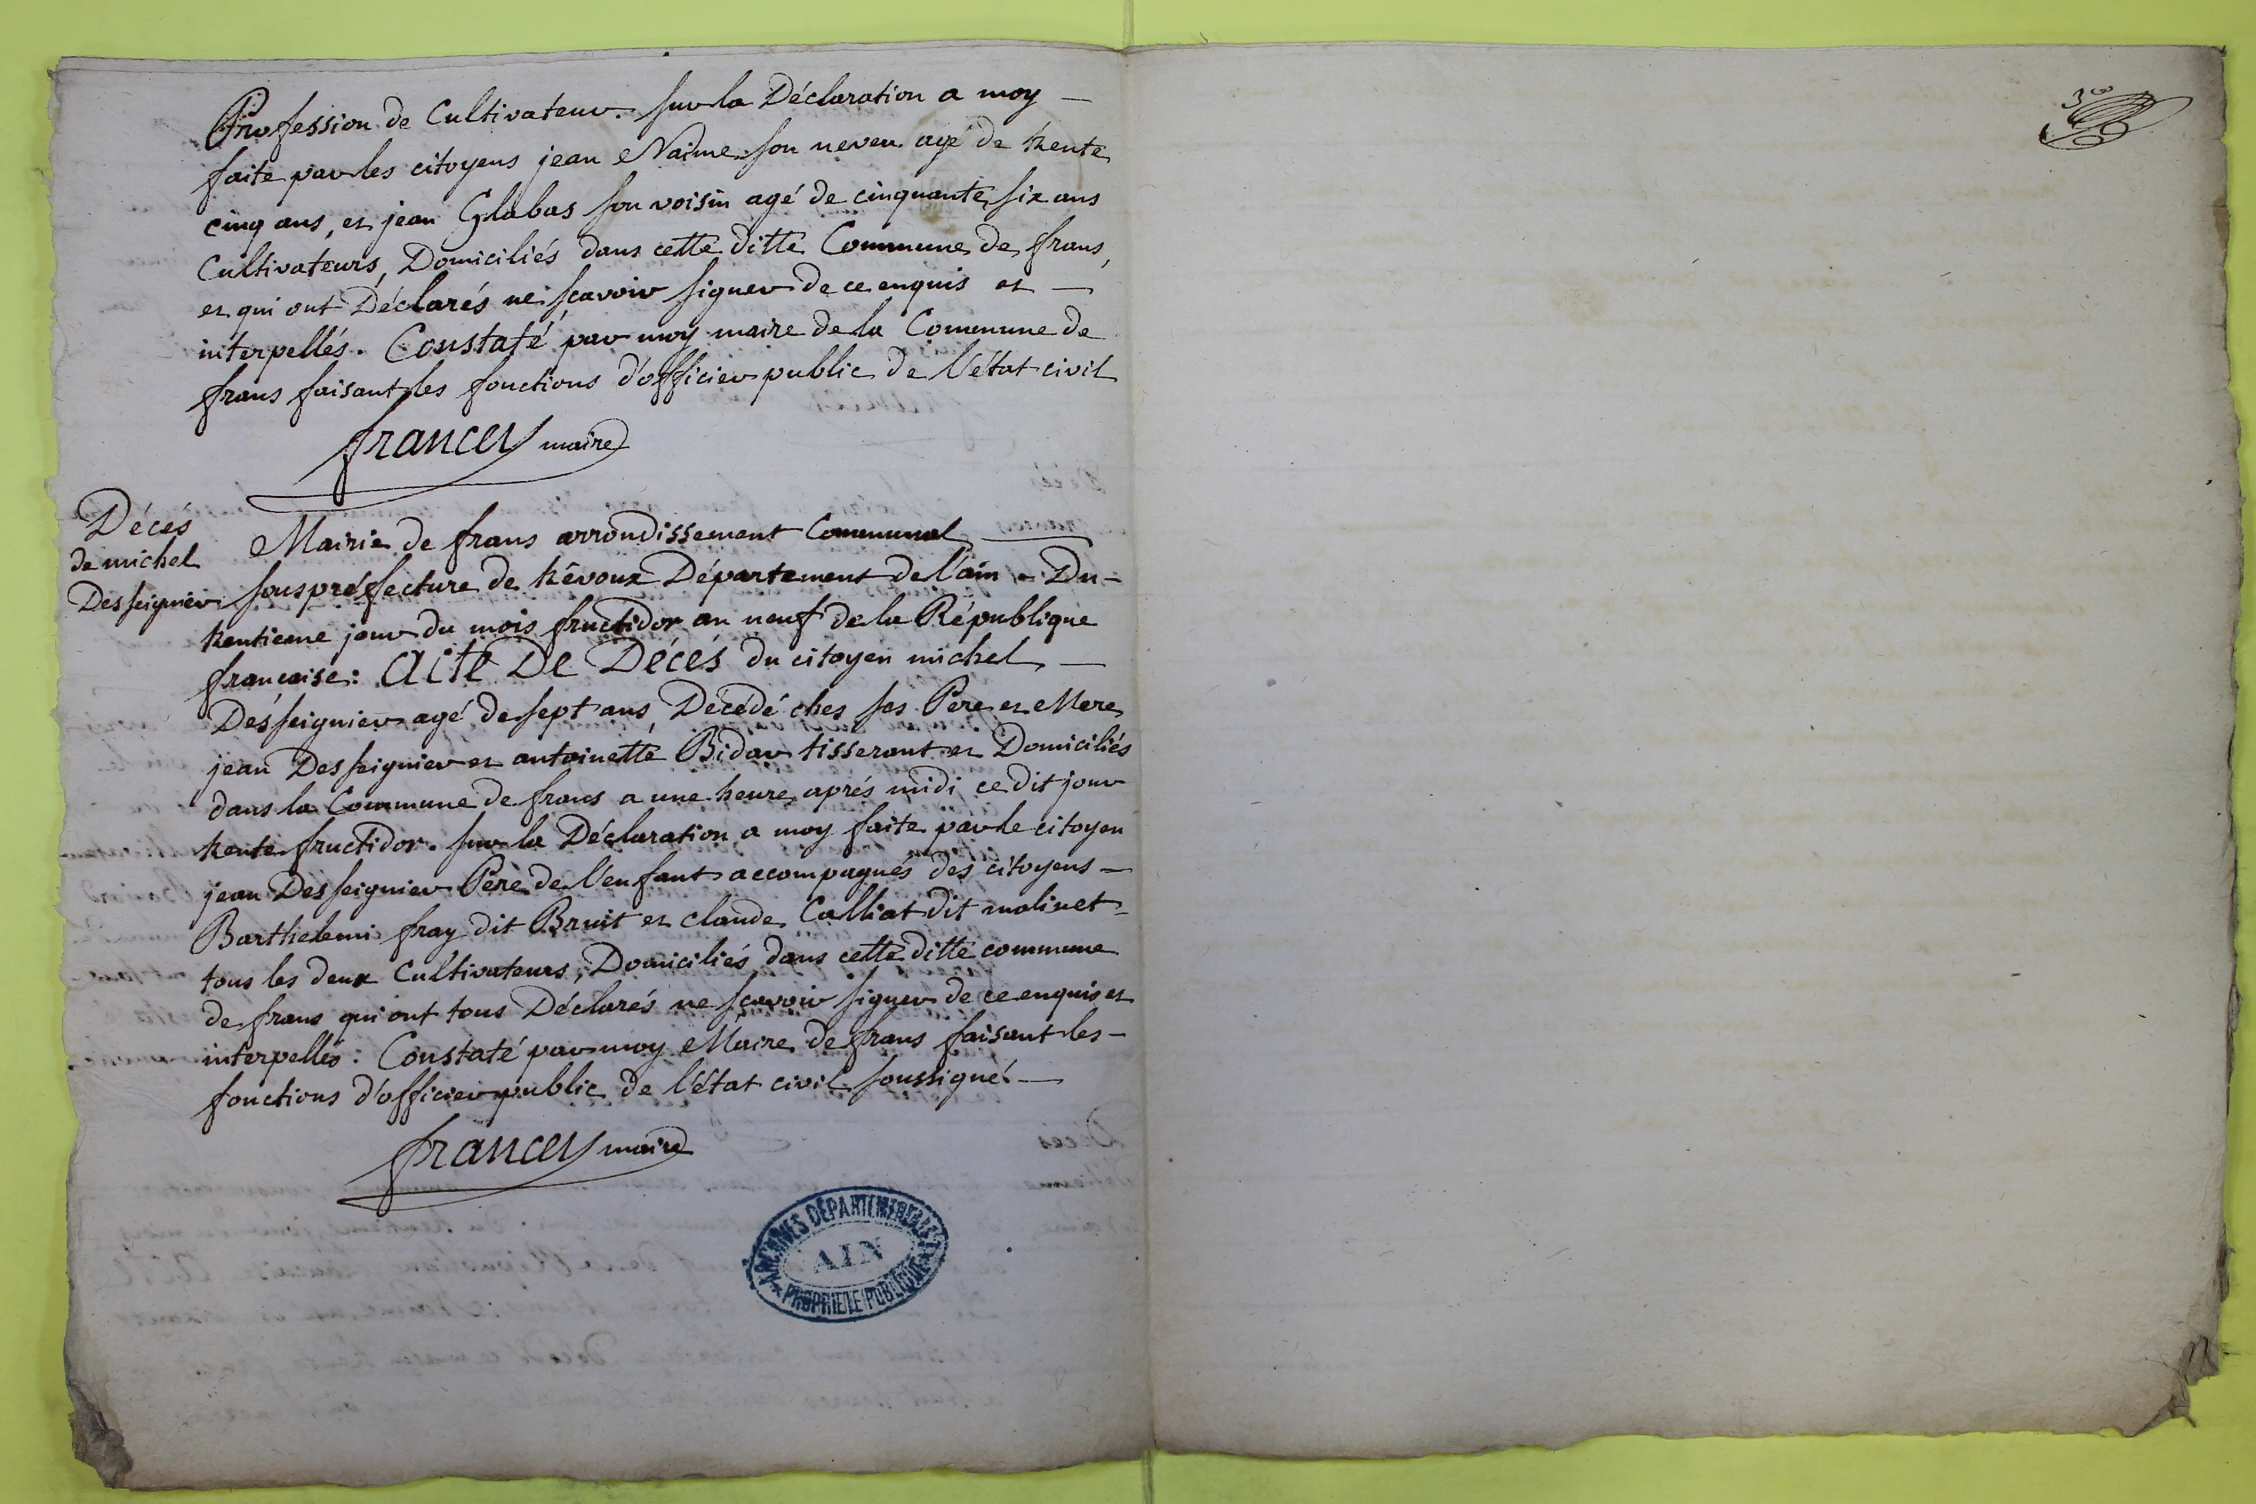 Profession de Cultivateur. sur la Déclaration a moy —
faite par les citoyens jean Naime son neveu agé de trente
cinq ans, et jean Glabas son voisin agé de cinquante six ans
Cultivateurs, Domiciliés dans cette ditte Commune de frans,
et qui ont Déclarés ne sçavoir signer de ce enquis et —
interpellés. Constaté par moy maire de la Commune de
frans faisant les fonctions d'officier public de l'état civil
francey maire
Décés
de michel
Desseignier
Mairie de frans arrondissement Communal —
sous préfecture de trévoux Département de l'ain - Du -
trentieme jour du mois fructidor an neuf de la République
francaise: Acte De Décés du citoyen michel —
Desseignier agé de sept ans, Décédé ches ses Pere et Mere
jean Desseignier et antoinette Bidar tisserant et Domiciliés
dans la Commune de frans a une heure aprés midi ce dit jour
trente fructidor. sur la Déclaration a moy faite par le citoyen
jean Desseignier Pere de l'enfant accompagnés des citoyens —
Barthelemi fray dit Bruit et claude Calliat dit molinet -
tous les deux Cultivateurs, Domiciliés dans cette ditte commune
de frans qui ont tous Déclarés ne sçavoir signer de ce enquis et
interpellés: Constaté par moy Maire de frans faisant les -
fonctions d'officier public de l'état civil soussigné —
francey maire
ARCHIVES DÉPARTEMENTALES
AIN
PROPRIÉTÉ PUBLIQUE
3e